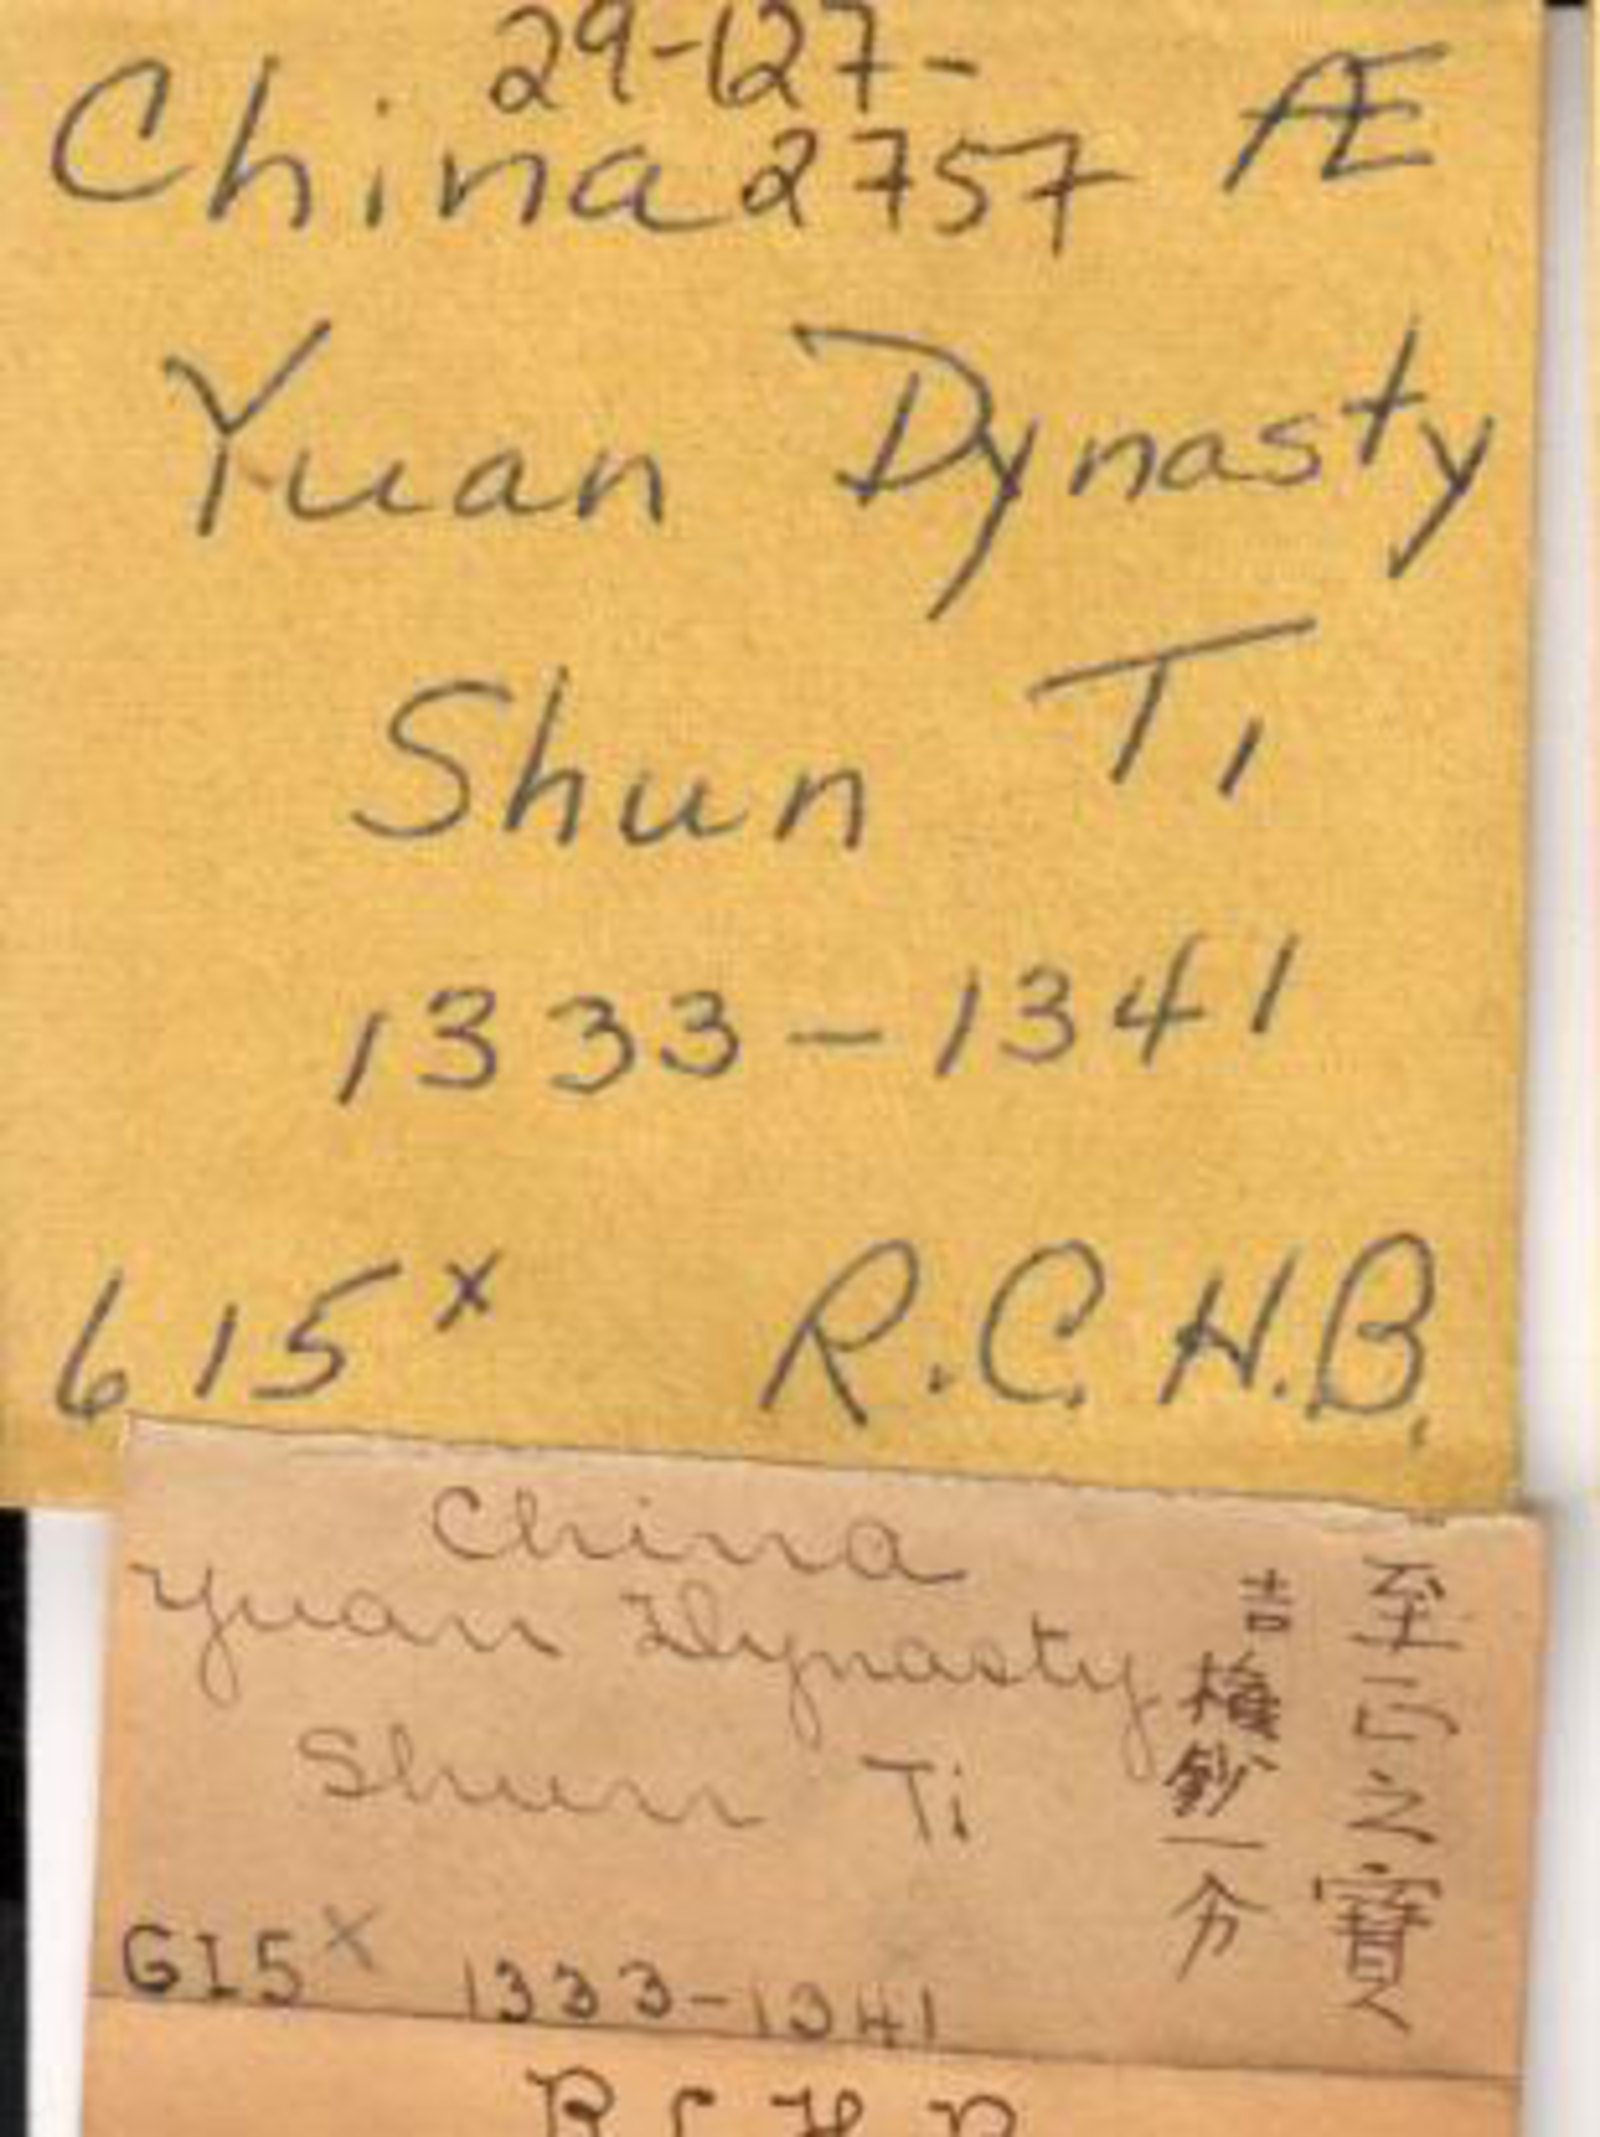 29-127-
China 2757 Æ
Yuan Dynasty
Shun Ti
1333-1341
615x R.C.H.B.
China
Yuan Dynasty
Shun Ti
615x 1333-1341
至正之寶
吉權鈔一分
R.C.H.B.